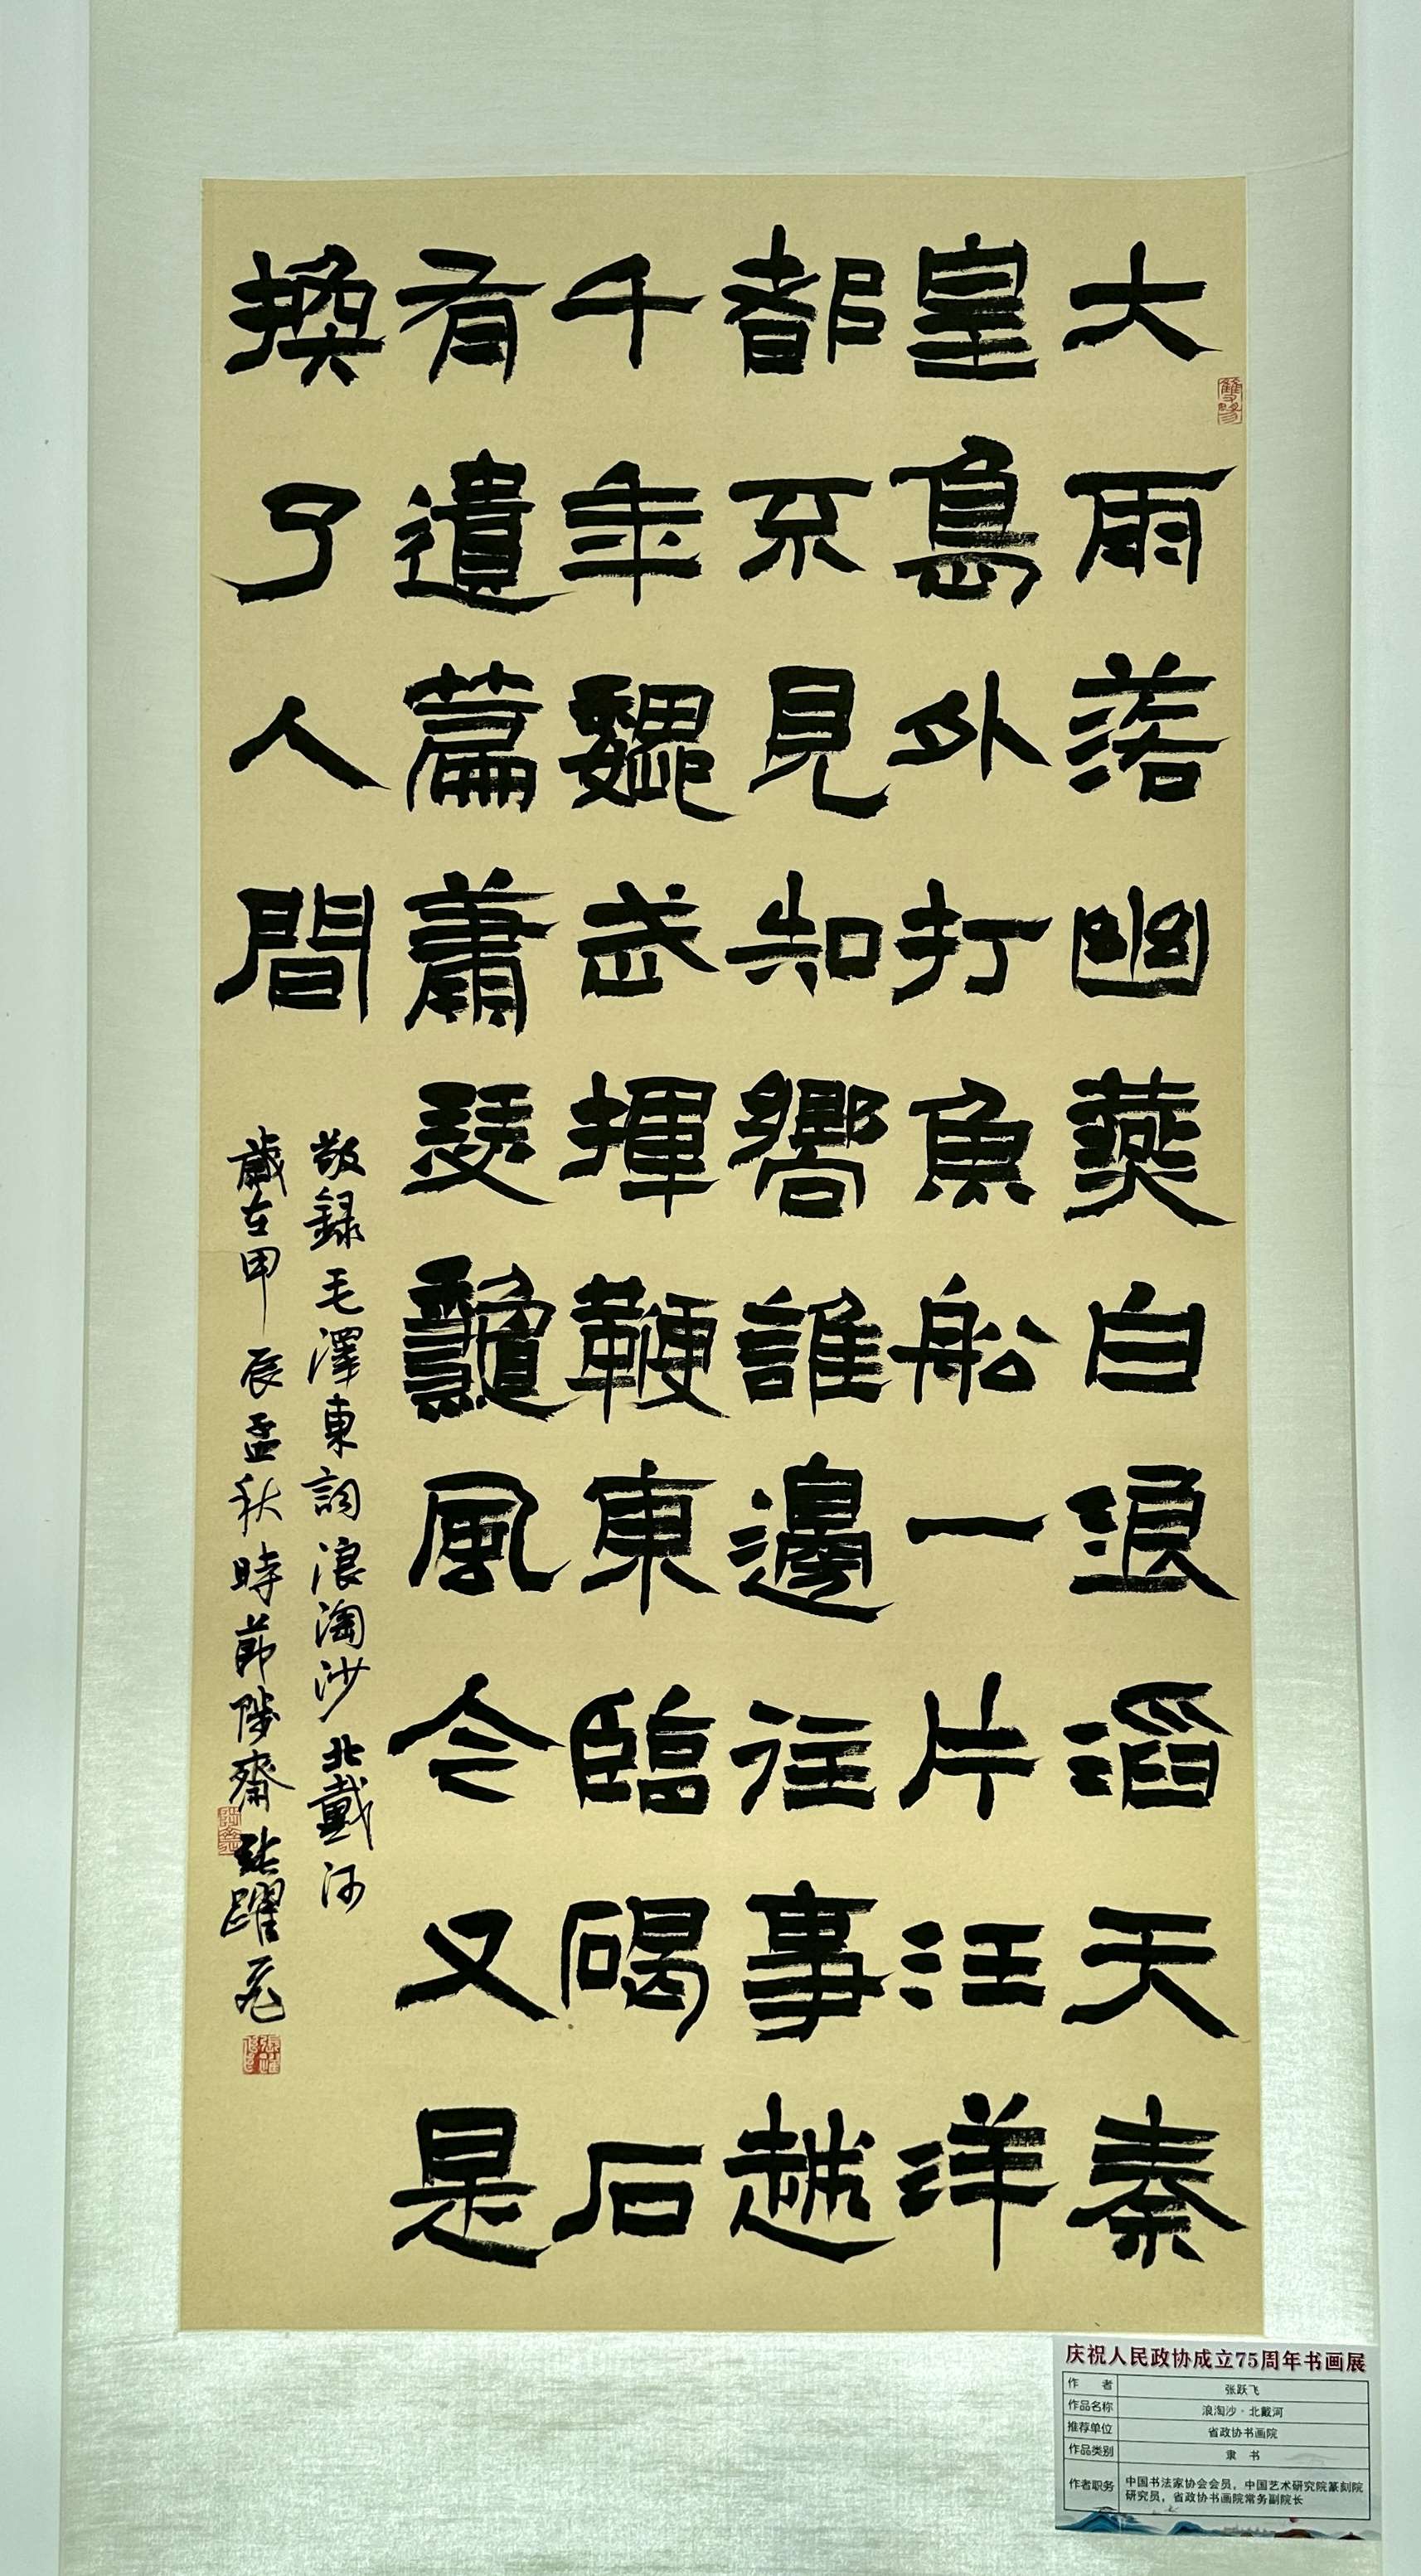 大雨落幽燕白浪滔天秦
皇島外打魚船一片汪洋
都不見知嚮誰邊往事越
千年魏武揮鞭東臨碣石
有遺篇蕭瑟龝風今又是
換了人間
敬録毛澤東詞浪淘沙北戴河
歲在甲辰孟秋時節陟齋張躍飛
庆祝人民政协成立75周年书画展
作 者 张跃飞
作品名称 浪淘沙·北戴河
推荐单位 省政协书画院
作品类别 隶 书
作者职务 中国书法家协会会员，中国艺术研究院篆刻院
研究员，省政协书画院常务副院长